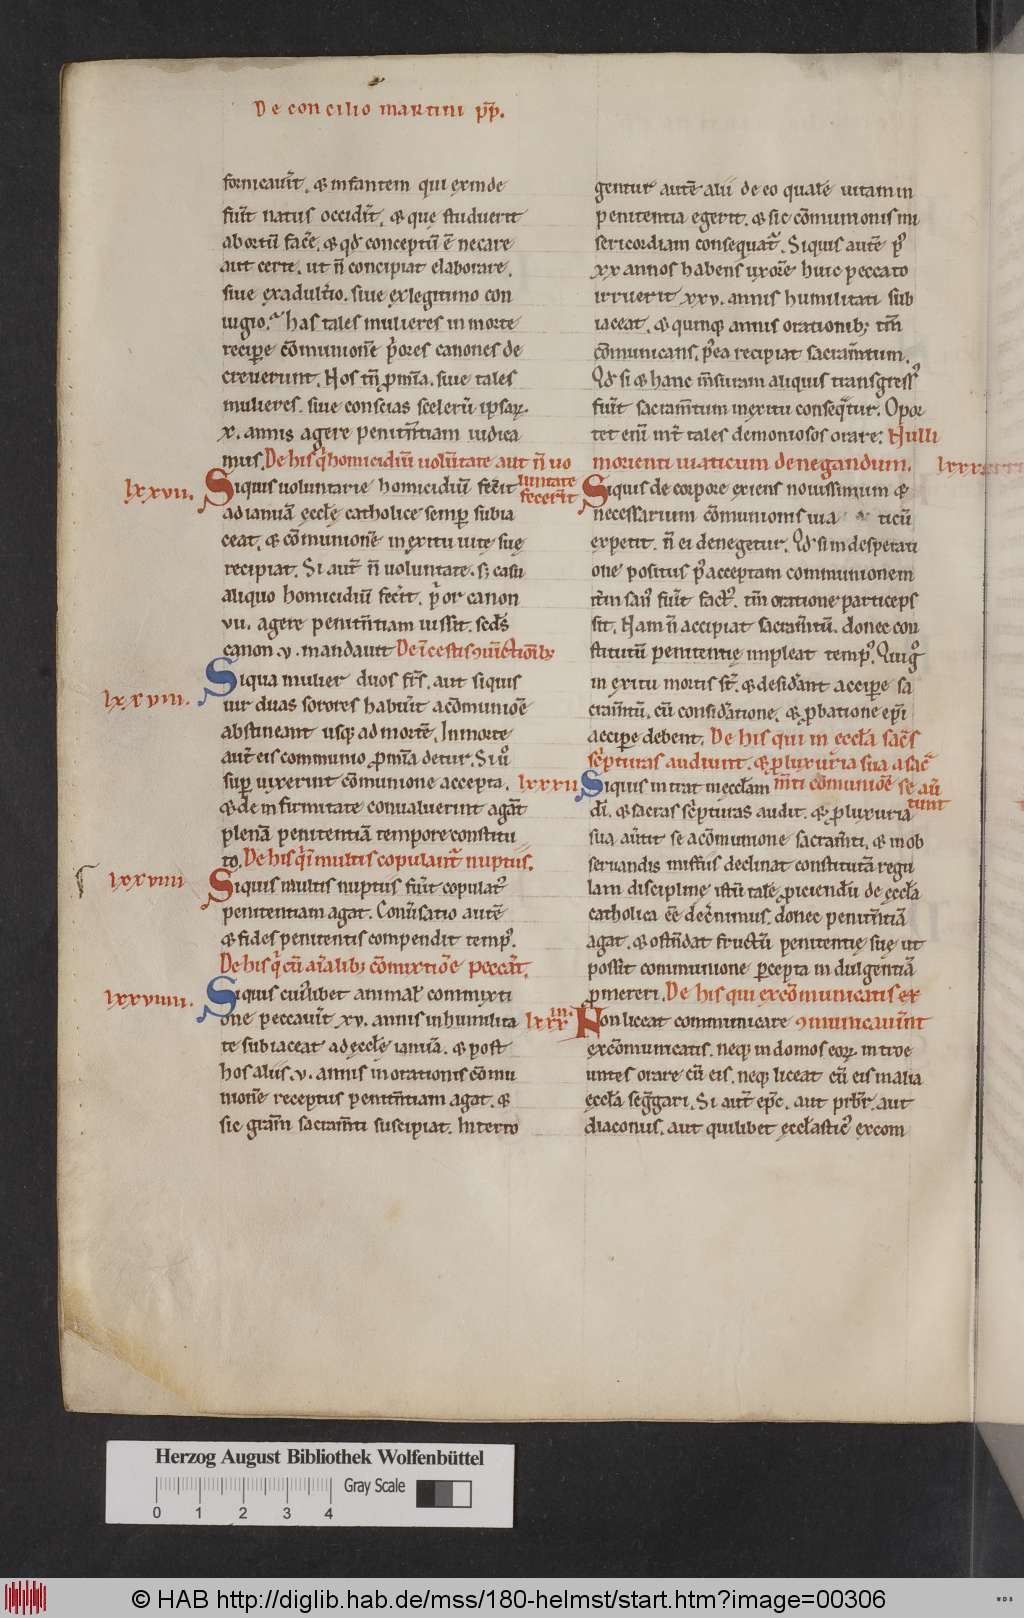 De concilio martini pp̄.
fornicauit̄. & infantem qui exinde
fuit̄ natus occidit̄. & que studuerit
abortū facē. & qd̄ conceptū ē necare
aut certe. ut n̄ concipiat elaborare.
siue exadult̄io. siue exlegitimo con
iugio. has tales mulieres in morte
recipere cōmunionē p̄ores canones de
creuerunt. Nos tn̄ p̄ mīa. siue tales
mulieres. siue conscias scelerū ipsarꝝ.
x. annis agere penitn̄tiam iudica
mus. De his q̄ homicidiū uolūtate aut n̄ uo
luntate
fecer̄it
lxxvii. Siquis uoluntarie homicidiū fec̄it
ad ianuā eccłę catholice semꝑ subia
ceat. & cōmunionē in exitu uitę suę
recipiat. Si aut̄ n̄ uoluntate. sꝫ casu
aliquo homicidiū fec̄it. p̄or canon
vii. agere penitn̄tiam iussit. sc̄ds
canon .v. mandauit De īcestis ꝯiūctionibꝫ
lxxviii. Siqua mulier duos fr̄s. aut siquis
uir duas sorores habuit̄ a cōmuniōe
abstineant usqꝫ ad mortē. In morte
aut̄ eis communio ꝓ mīa detur. Si ū
suꝑ uixerint cōmunione accepta.
& de infirmitate conualuerint agāt
plenā penitentiā tempore constitu
to. De his q̄ ī multis copulant̄ nuptiis.
lxxviiii Siquis multis nuptiis fuit̄ copulat᷒
penitentiam agat. Conu̇satio autē
& fides penitentis compendit temp᷒.
De his q̄ cū aīalibꝫ cōmixtiōe peccāt.
lxxviiiii. Siquis cuilibet animał commixti
one peccauit̄ xv. annis in humilita
te subiaceat ad eccłę ianuā. & post
hos aliis .v. annis in orationis cōmu
nionē receptus penitn̄tiam agat. &
sic grām̄ sacram̄ti suscipiat. Interro
gentur autē alii de eo qualē uitam in
penitentia egerit. & sic cōmunionis mi
sericordiam consequat̄. Siquis autē p᷒
xx annos habens uxorē huic peccato
irruerit xxv. annis humilitati sub
iaceat. & quinqꝫ annis orationibꝫ tm̄
cōmunicans. p᷒ea recipiat sacram̄tum.
Qd̄ si & hanc m̄suram aliquis transgress᷒
fuit̄ sacram̄tum in exitu conseq̄tur. Opor
tet enī int̄ tales demoniosos orare: Nulli
morienti uiaticum denegandum.
Siquis de corpore exiens nouissimum &
necessarium cōmunionis uia ticū
expetit. n̄ ei denegetur. Qd̄ si in desperati
one positus p᷒ acceptam communionem
it̄m san᷒ fuit̄ fact᷒. tm̄ oratione particeps
sit. Nam n̄ accipiat sacram̄tū. donec con
stitutū penitentię impleat temp᷒. Qui ḡ
in exitu mortis st̄. & desid̄ant accipere sa
cram̄tū. cū consid̄atione. & ꝓbatione ep̄i
accipere debent. De his qui in eccła sac̄s
sc̄pturas audiunt. & ꝓ luxuria sua a sac̄
m̄ti comuniōe se aū
tunt
lxxxii Siquis intrat in eccłam
dī. & sacras sc̄pturas audit. & ꝓ luxuria
sua aut̄it se a cōmunione sacram̄ti. & in ob
seruandis missus declinat constitutā regu
lam disciplinę istū talē ꝓiciendū de eccła
catholica eē dec̄nimus. donec penitn̄tiā
agat. & ostn̄dat fructū penitentię suę ut
possit communione ꝑcepta indulgentiā
ꝓmereri. De his qui excōmunicatis ex
lxxx iii. Non liceat communicare ꝯmunicauer̄int
excōmunicatis. neqꝫ in domos eorꝝ. introe
untes orare cū eis. neqꝫ liceat cū eis in alia
eccła seg̃gari. Si aut̄ ep̄c. aut prb̄r. aut
diaconus. aut quilibet eccłastic᷒ excom
Herzog August Bibliothek Wolfenbüttel
Gray Scale
0 1 2 3 4
© HAB http://diglib.hab.de/mss/180-helmst/start.htm?image=00306